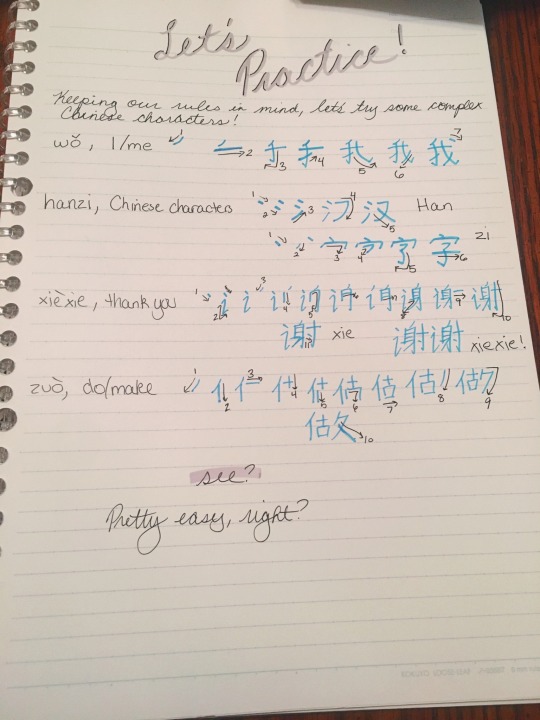 Let's
Practice!
Keeping our rules in mind, let's try some complex
Chinese characters!
wǒ, I/me 2 3 4 我 5 我 6 我 7
hanzi, Chinese characters 1 2 3 汉 4 汉 5 Han
1 2 3 4 5 字 6 zi
xièxie, thank you 1 2 3 4 5 9 谢 10
谢 xie 谢谢 xiexie!
zuò, do/make 1 2 亻 3 4 5 6 估 7 估 8 9
10
see?
Pretty easy, right?